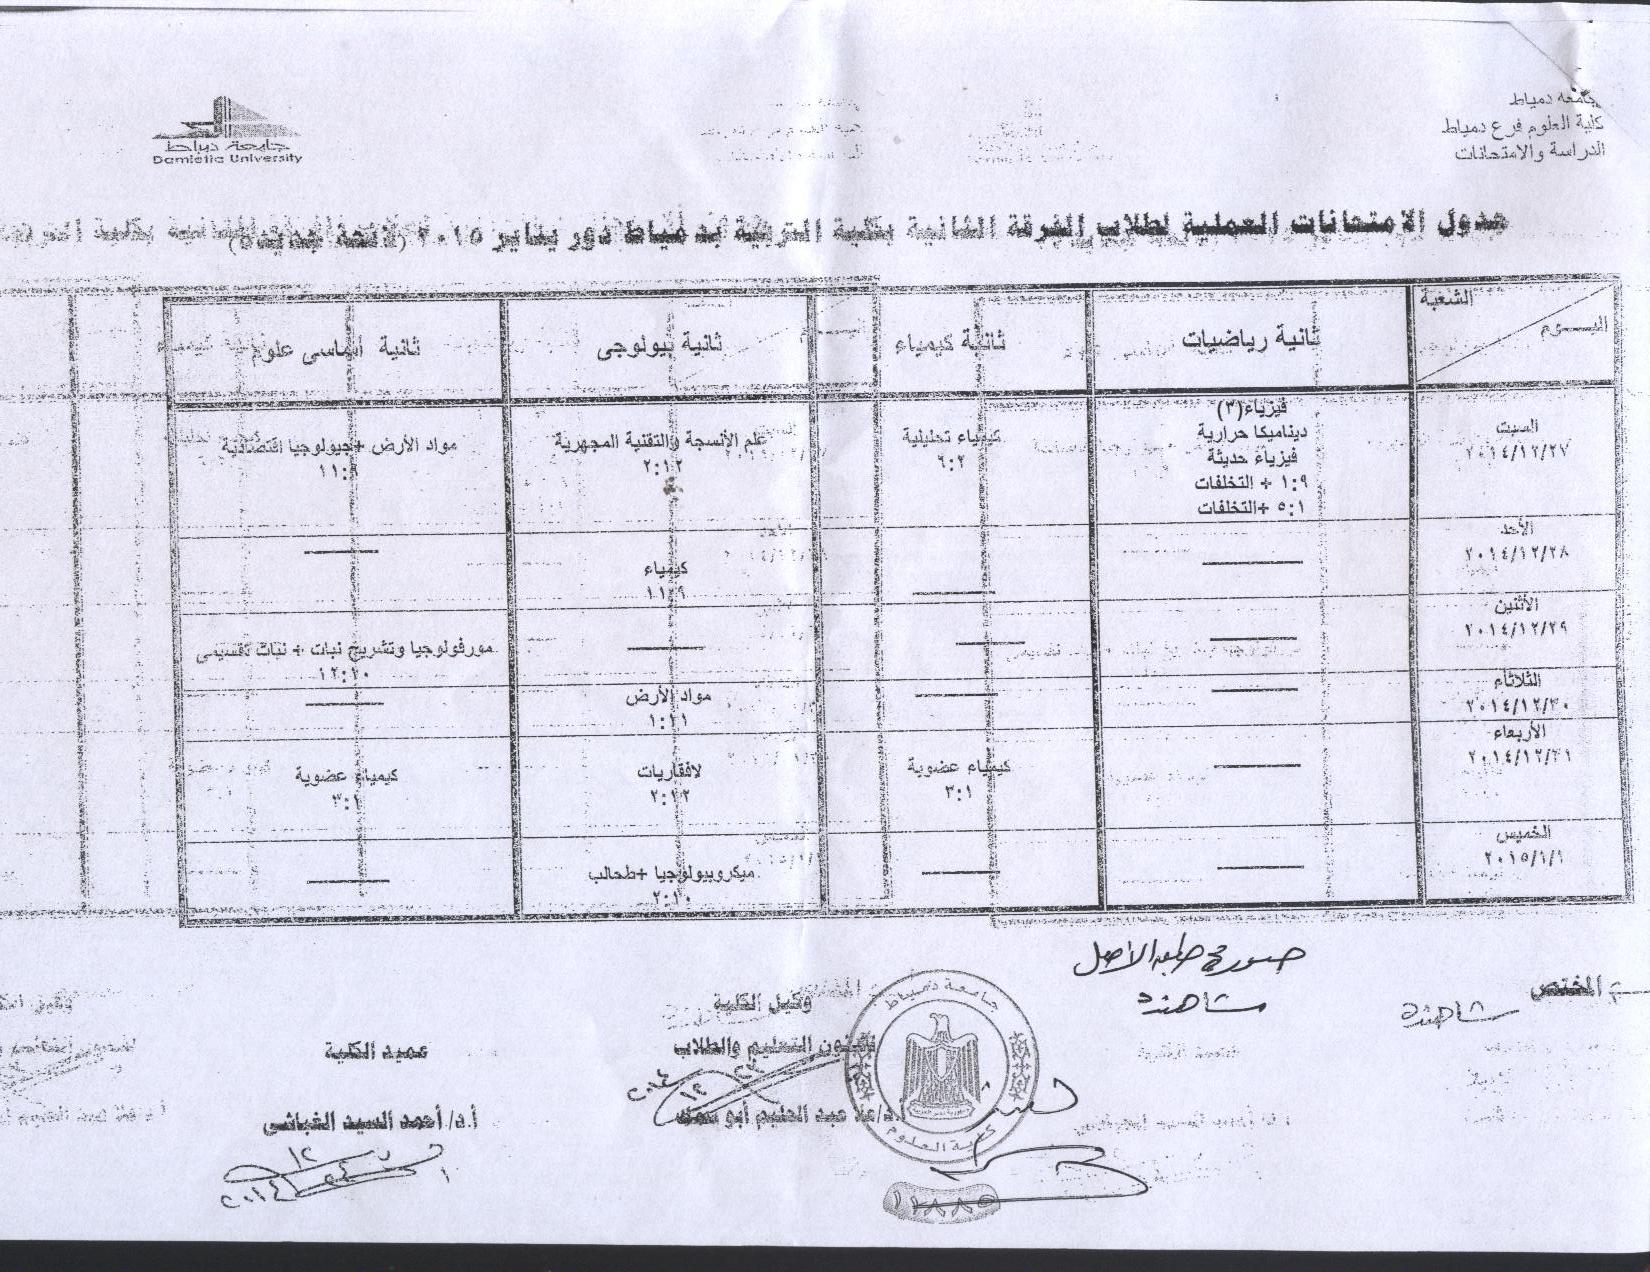 جامعة دمياط
كلية العلوم فرع دمياط
الدراسة والامتحانات
جامعة دمياط
Damietta University
جدول الامتحانات العملية لطلاب الفرقة الثانية بكلية التربية بدمياط دور يناير ٢٠١٥ (لائحة جديدة)
الشعبة
اليــــوم
ثانية رياضيات
ثانية كيمياء
ثانية بيولوجى
ثانية أساسى علوم
السبت
٢٠١٤/١٢/٢٧
فيزياء(٣)
ديناميكا حرارية
فيزياء حديثة
١:٩ + التخلفات
٥:١ +التخلفات
كيمياء تحليلية
٦:٢
علم الأنسجة والتقنية المجهرية
٢:١٢
مواد الأرض +جيولوجيا اقتصادية
١١:٩
الأحد
٢٠١٤/١٢/٢٨
كيمياء
١١:٩
الأثنين
٢٠١٤/١٢/٢٩
مورفولوجيا وتشريح نبات + نبات تقسيمى
١٢:١٠
الثلاثاء
٢٠١٤/١٢/٣٠
مواد الأرض
١:١١
الأربعاء
٢٠١٤/١٢/٣١
كيمياء عضوية
٣:١
لافقاريات
٢:١٢
كيمياء عضوية
٣:١
الخميس
٢٠١٥/١/١
ميكروبيولوجيا +طحالب
٢:١٠
المختص
شاهندة
صورة طبق الاصل
شاهندة
وكيل الكلية
لشئون التعليم والطلاب
عبد الحليم أبو
عميد الكلية
أ.د/ أحمد السيد الغباشى
جامعة دمياط
كلية العلوم